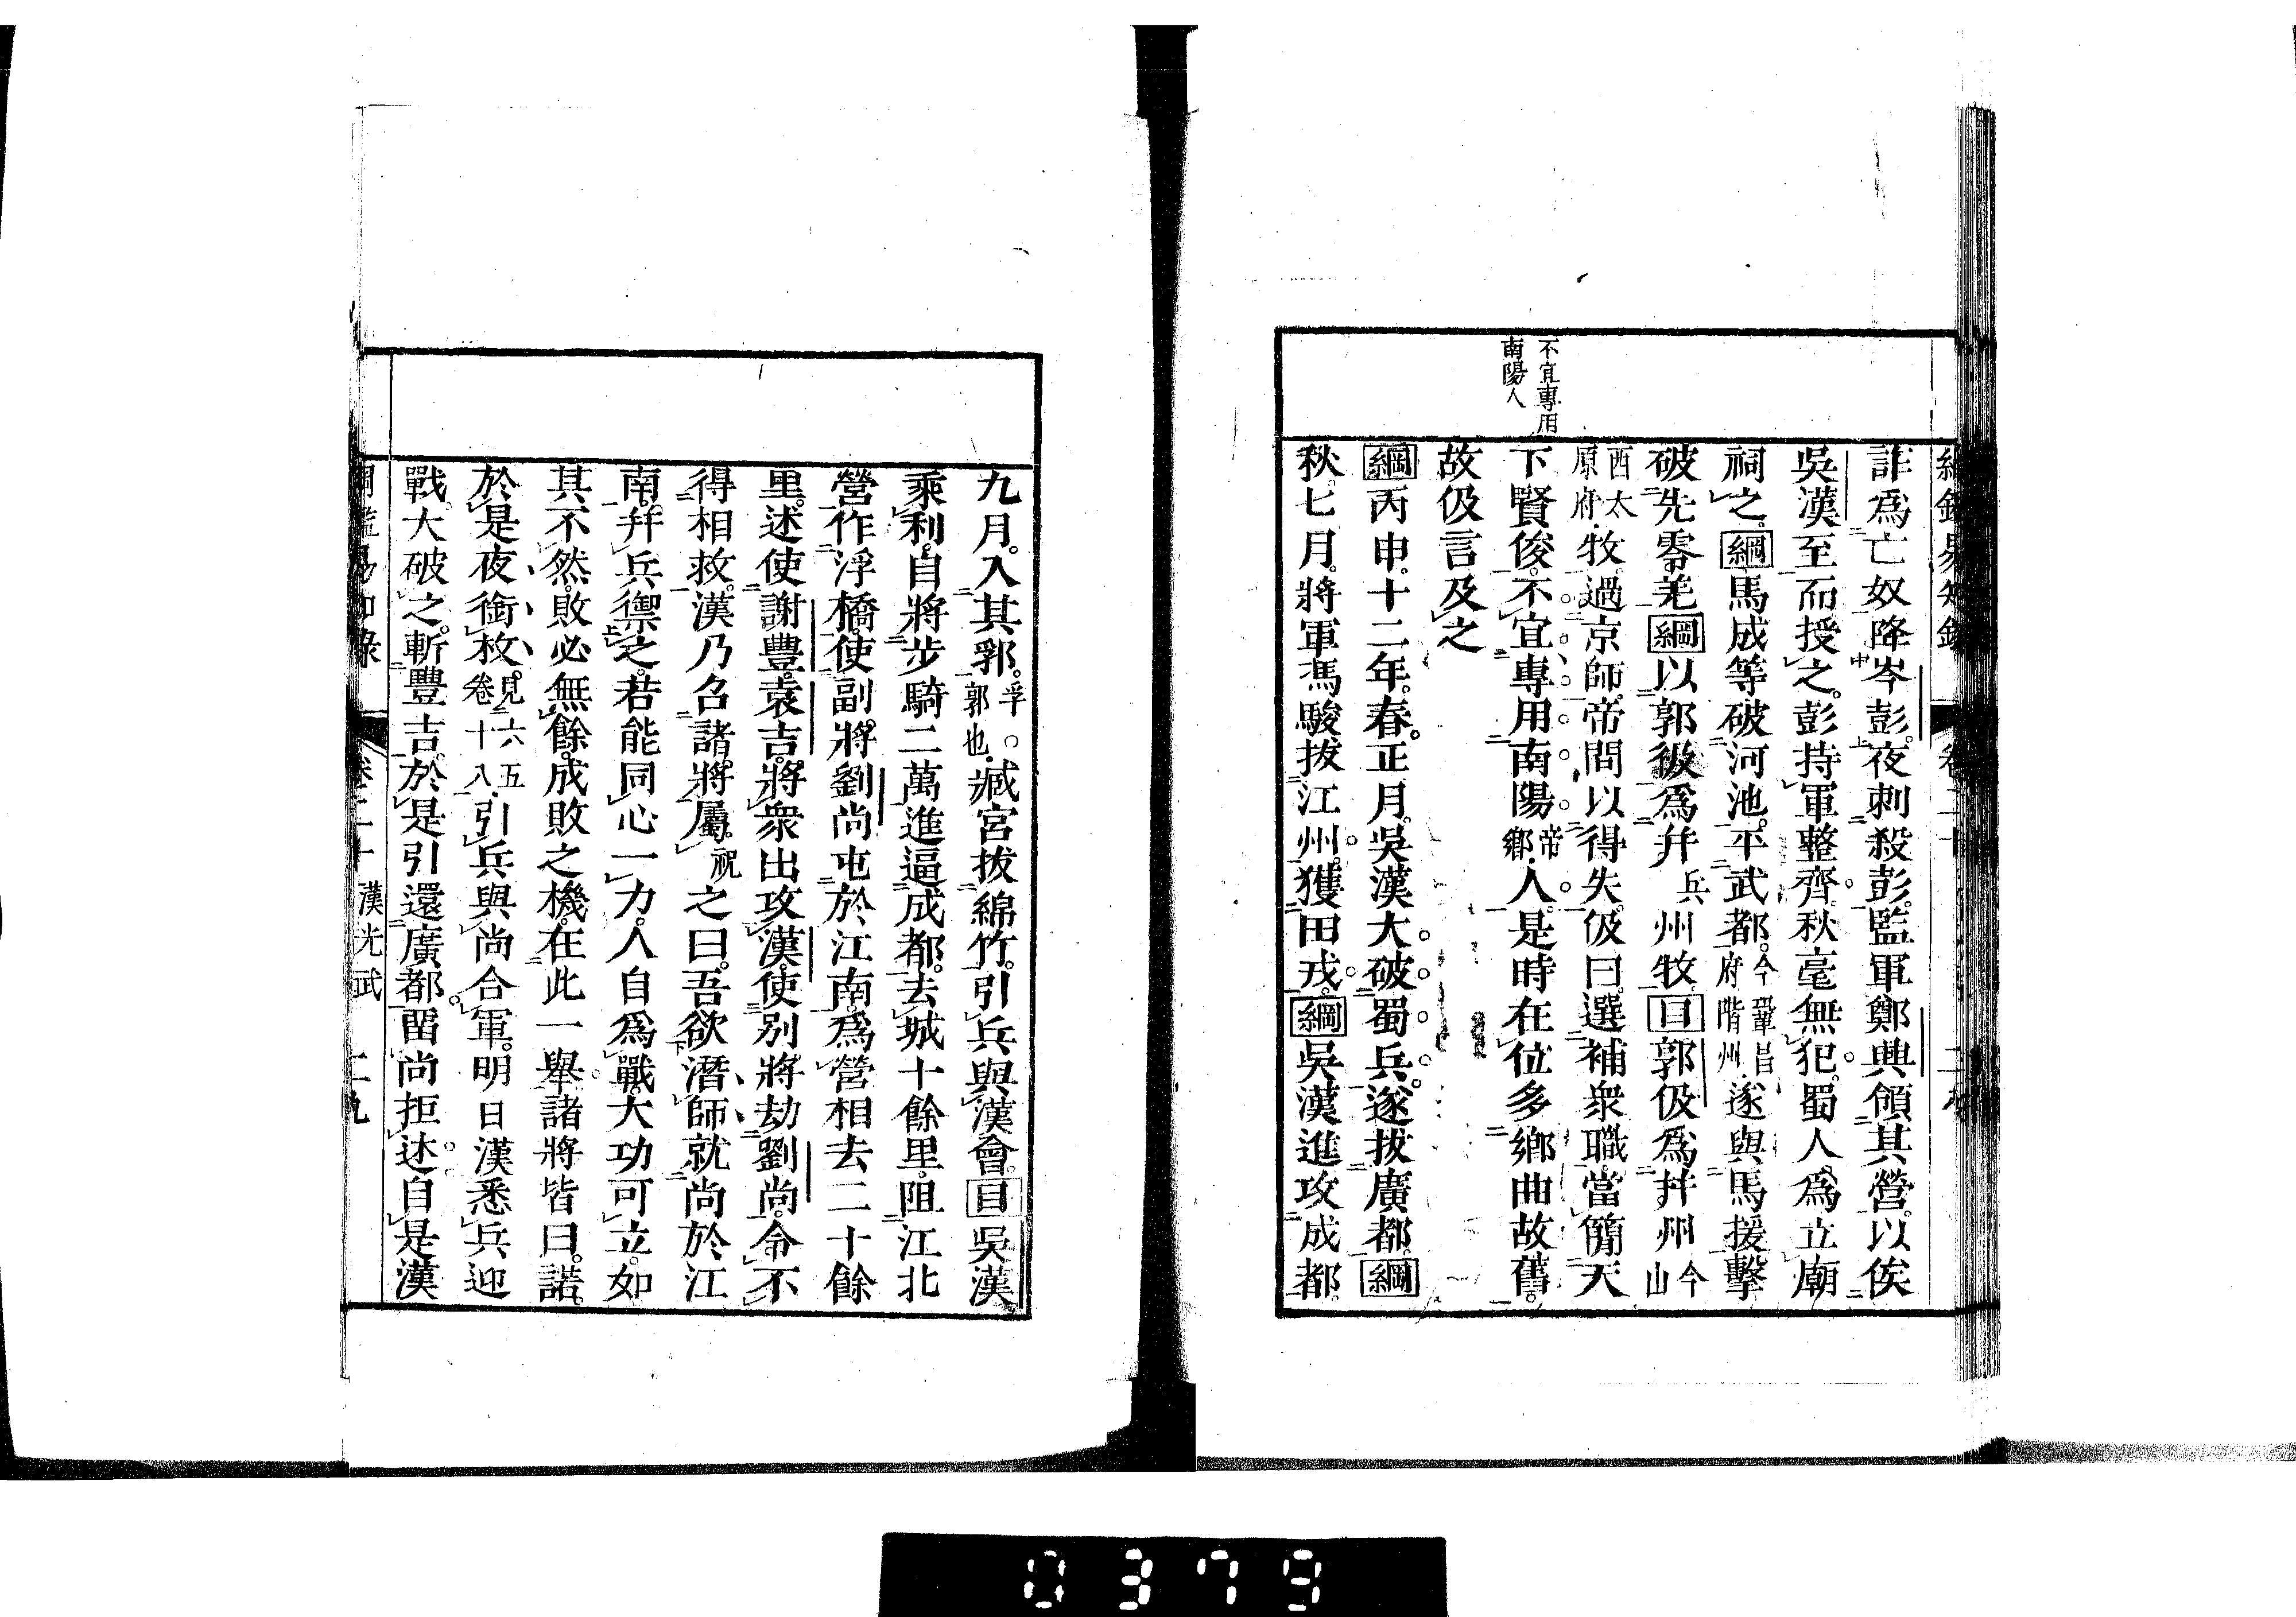 不宜專用
南陽人
詐爲亡奴降岑彭夜刺殺彭監軍鄭興領其營以俟
吳漢至而授之彭持軍整齊秋毫無犯蜀人爲立廟
祠之綱馬成等破河池平武都今鞏昌府階州遂與馬援擊
破先零羌綱以郭伋爲幷兵州牧目郭伋爲幷州今山
西太原府牧過京師帝問以得失伋曰選補衆職當簡天
下賢俊不宜專用南陽帝鄉人是時在位多鄉曲故舊
故伋言及之
綱丙申十二年春正月吳漢大破蜀兵遂拔廣都綱
秋七月將軍馮駿拔江州獲田戎綱吳漢進攻成都
九月入其郛孚郭也臧宮拔綿竹引兵與漢會目吳漢
乘利自將步騎二萬進逼成都去城十餘里阻江北
營作浮橋使副將劉尚屯於江南爲營相去二十餘
里述使謝豐袁吉將衆出攻漢使別將劫劉尚令不
得相救漢乃召諸將屬祝之曰吾欲潛師就尚於江
南幷兵禦之若能同心一力人自爲戰大功可立如
其不然敗必無餘成敗之機在此一舉諸將皆曰諾
於是夜銜枚見六五卷十八引兵與尚合軍明日漢悉兵迎
戰大破之斬豐吉於是引還廣都留尚拒述自是漢
綱鑑易知錄 卷二十 漢光武 二九
0379